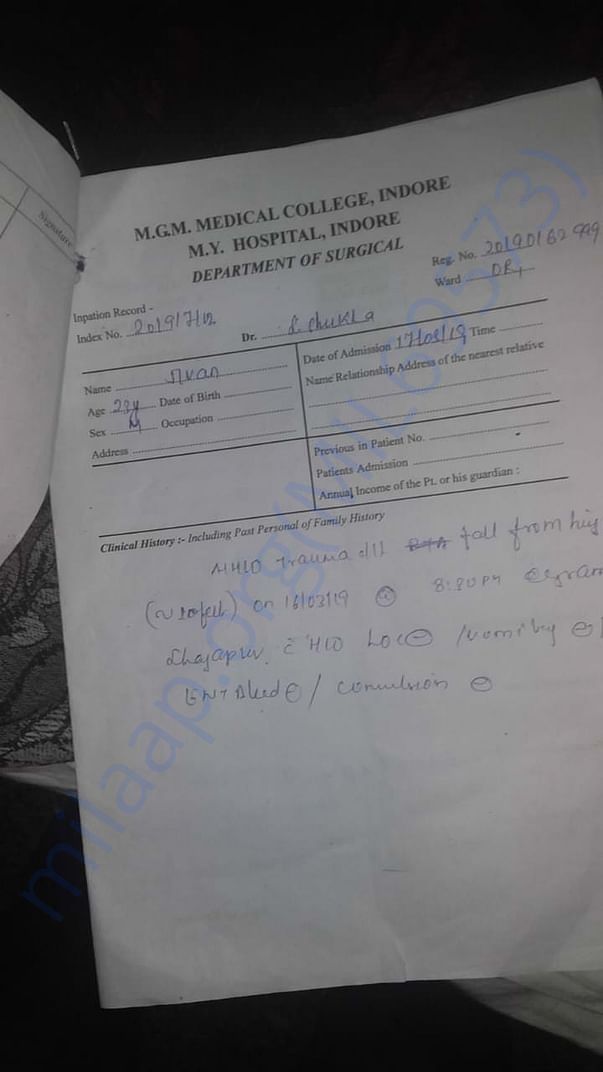 Signature
M.G.M. MEDICAL COLLEGE, INDORE
M.Y. HOSPITAL, INDORE
DEPARTMENT OF SURGICAL
Inpation Record -
Reg. No. 20190162999
Index No. 2019/7/12
Dr.
Ward
Name
Age Date of Birth
Sex M Occupation
Address
Date of Admission 17/03/19 Time
Name Relationship Address of the nearest relative
Previous in Patient No.
Patients Admission
Annual Income of the Pt. or his guardian :
Clinical History :- Including Past Personal of Family History
H/O Trauma d/t fall from
on 16/03/19 @ 8:30PM
H/O LOC ⊖ / vomiting ⊖ /
ENT Bleed ⊖ / convulsion ⊖
milaap.org(MIL69573)